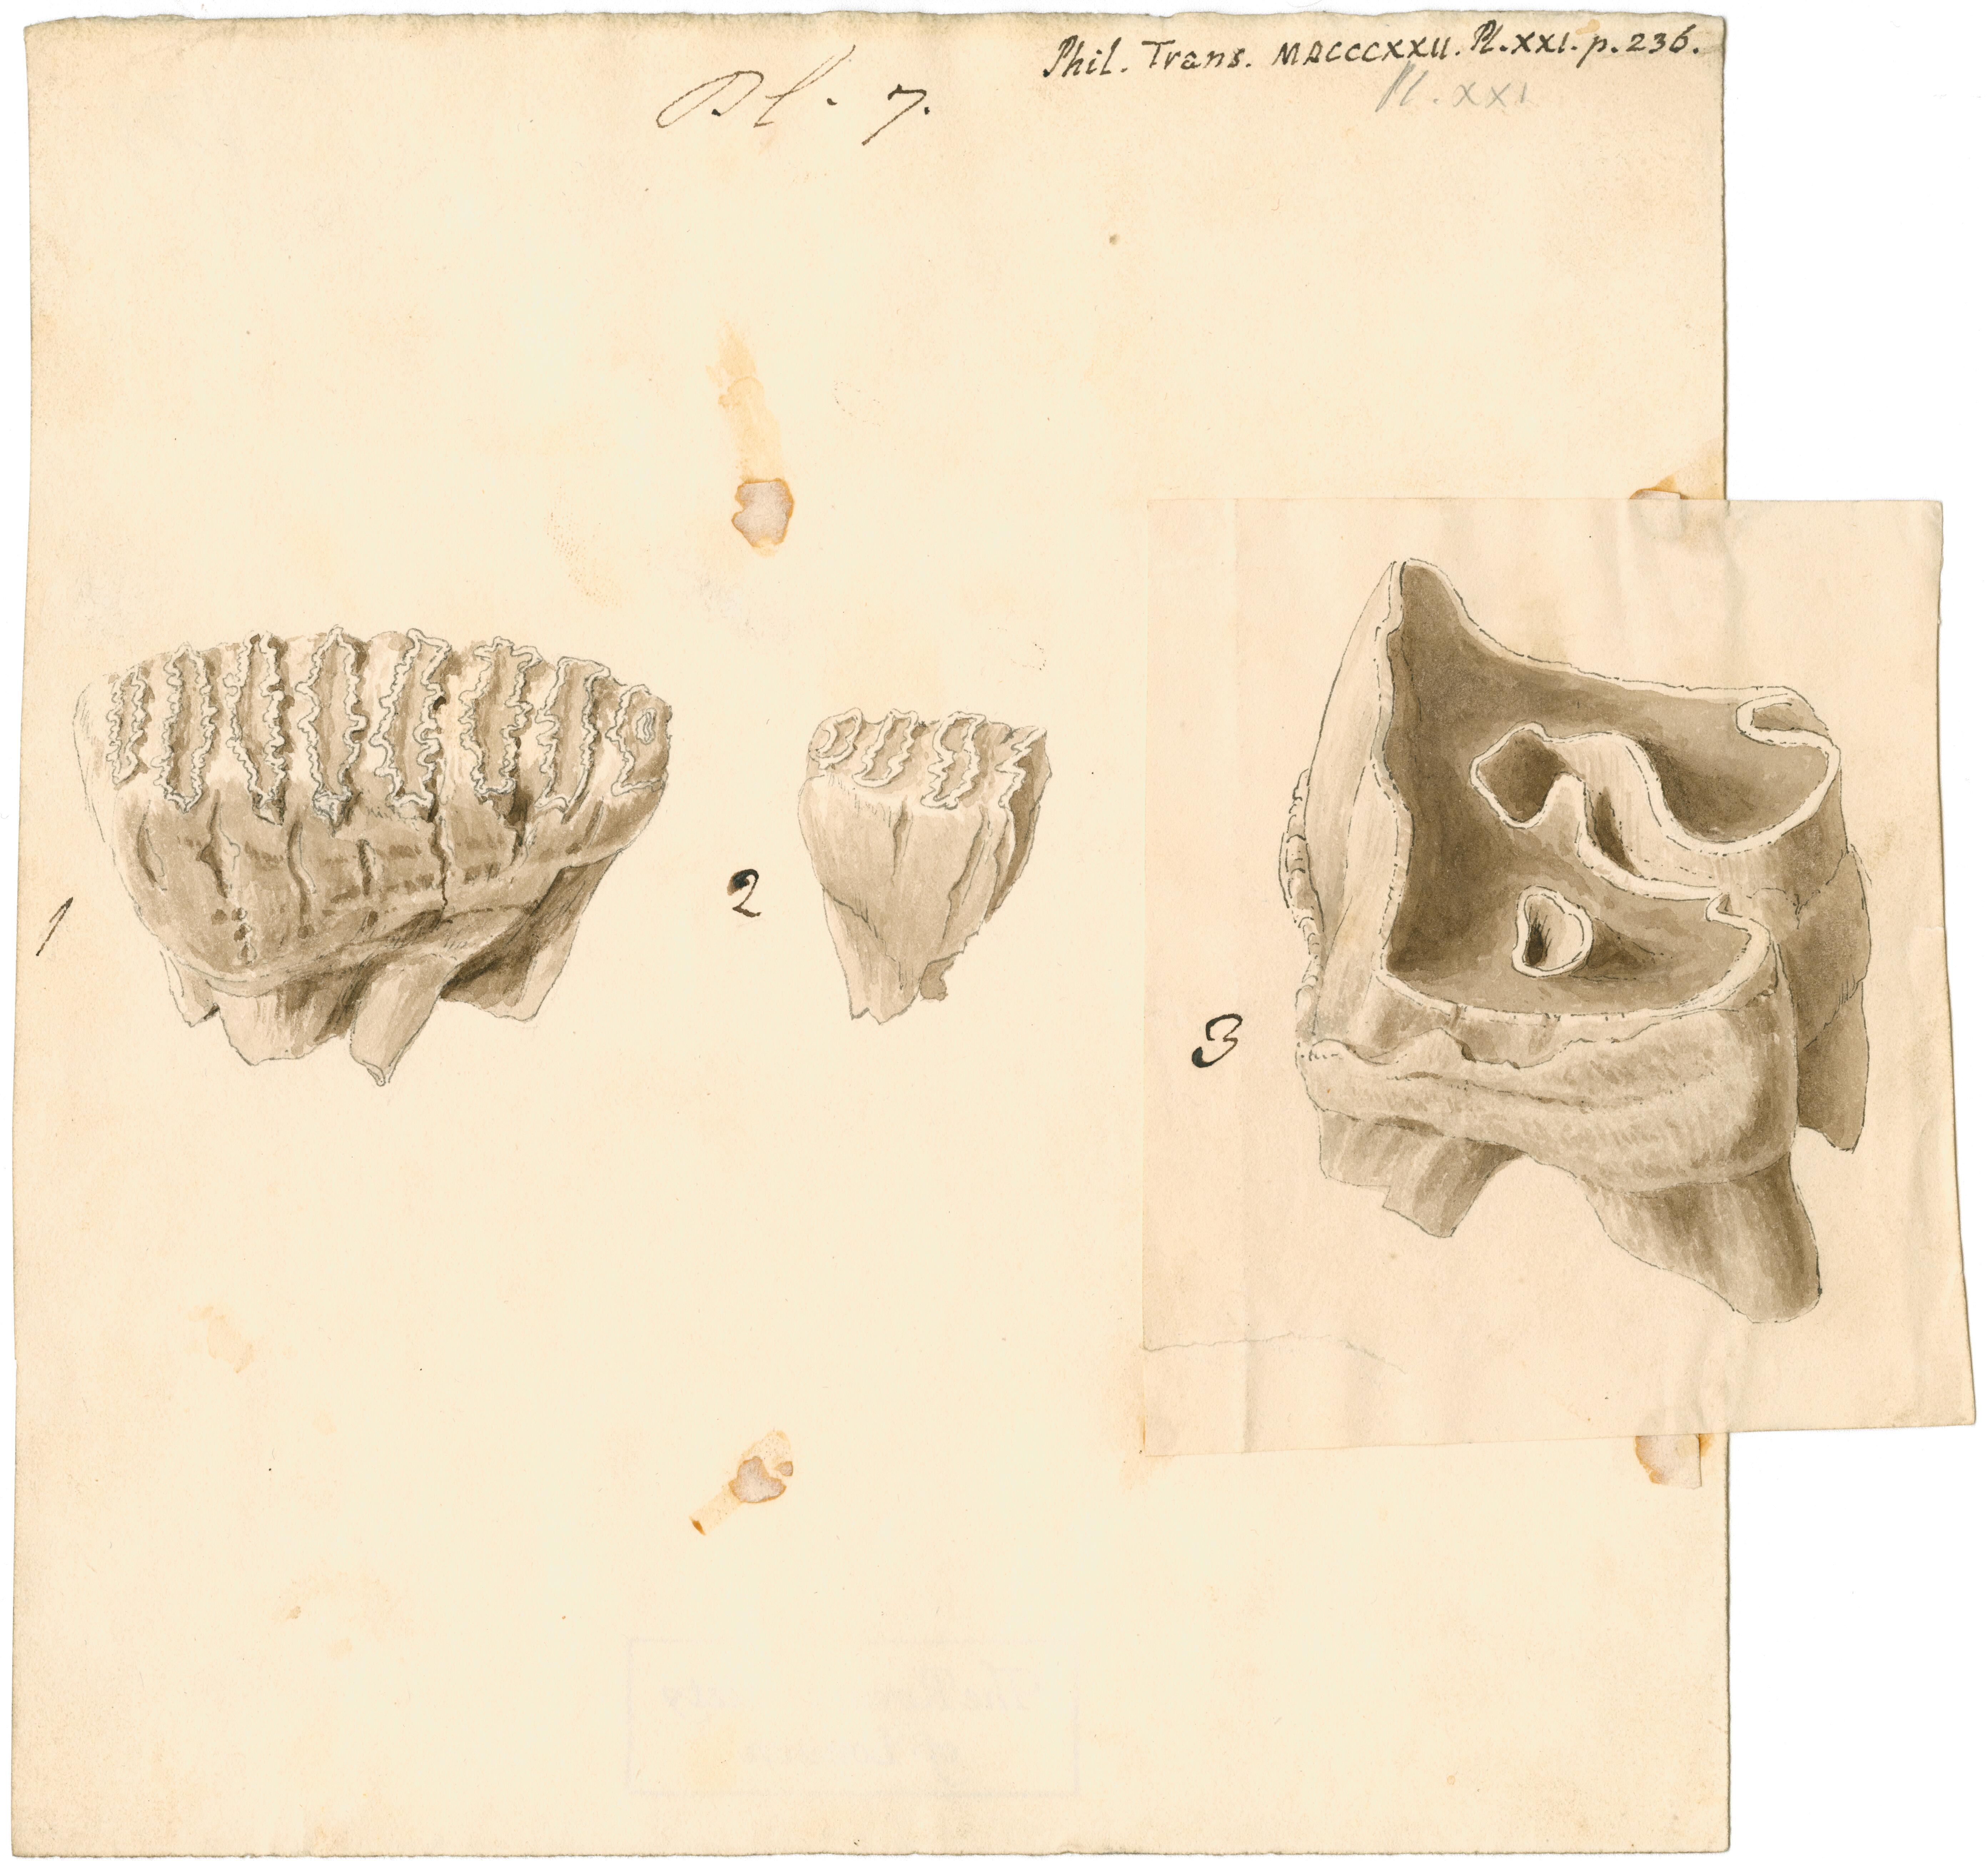 Phil. Trans. MDCCCXXII. Pl. XXI. p. 236.
Pl. XXI
Pl. 7.
1
2
3